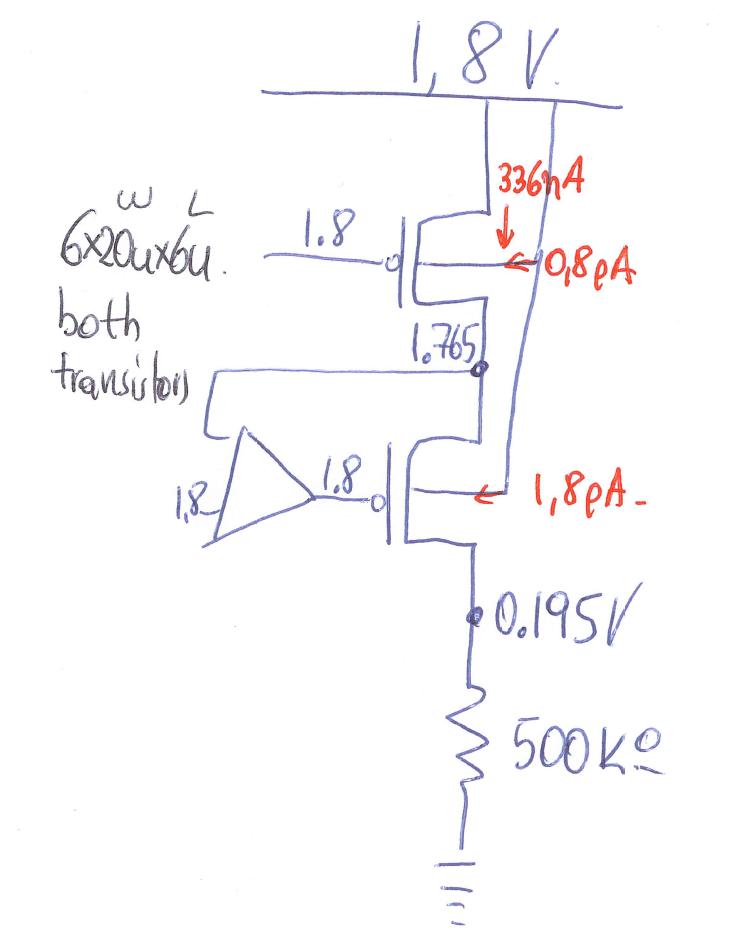 1,8 V.
336nA
W L
6x20ux6u.
1.8
0,8pA
both
1.765
transistors
1.8
1,8
1,8pA-
0.195V
500KΩ